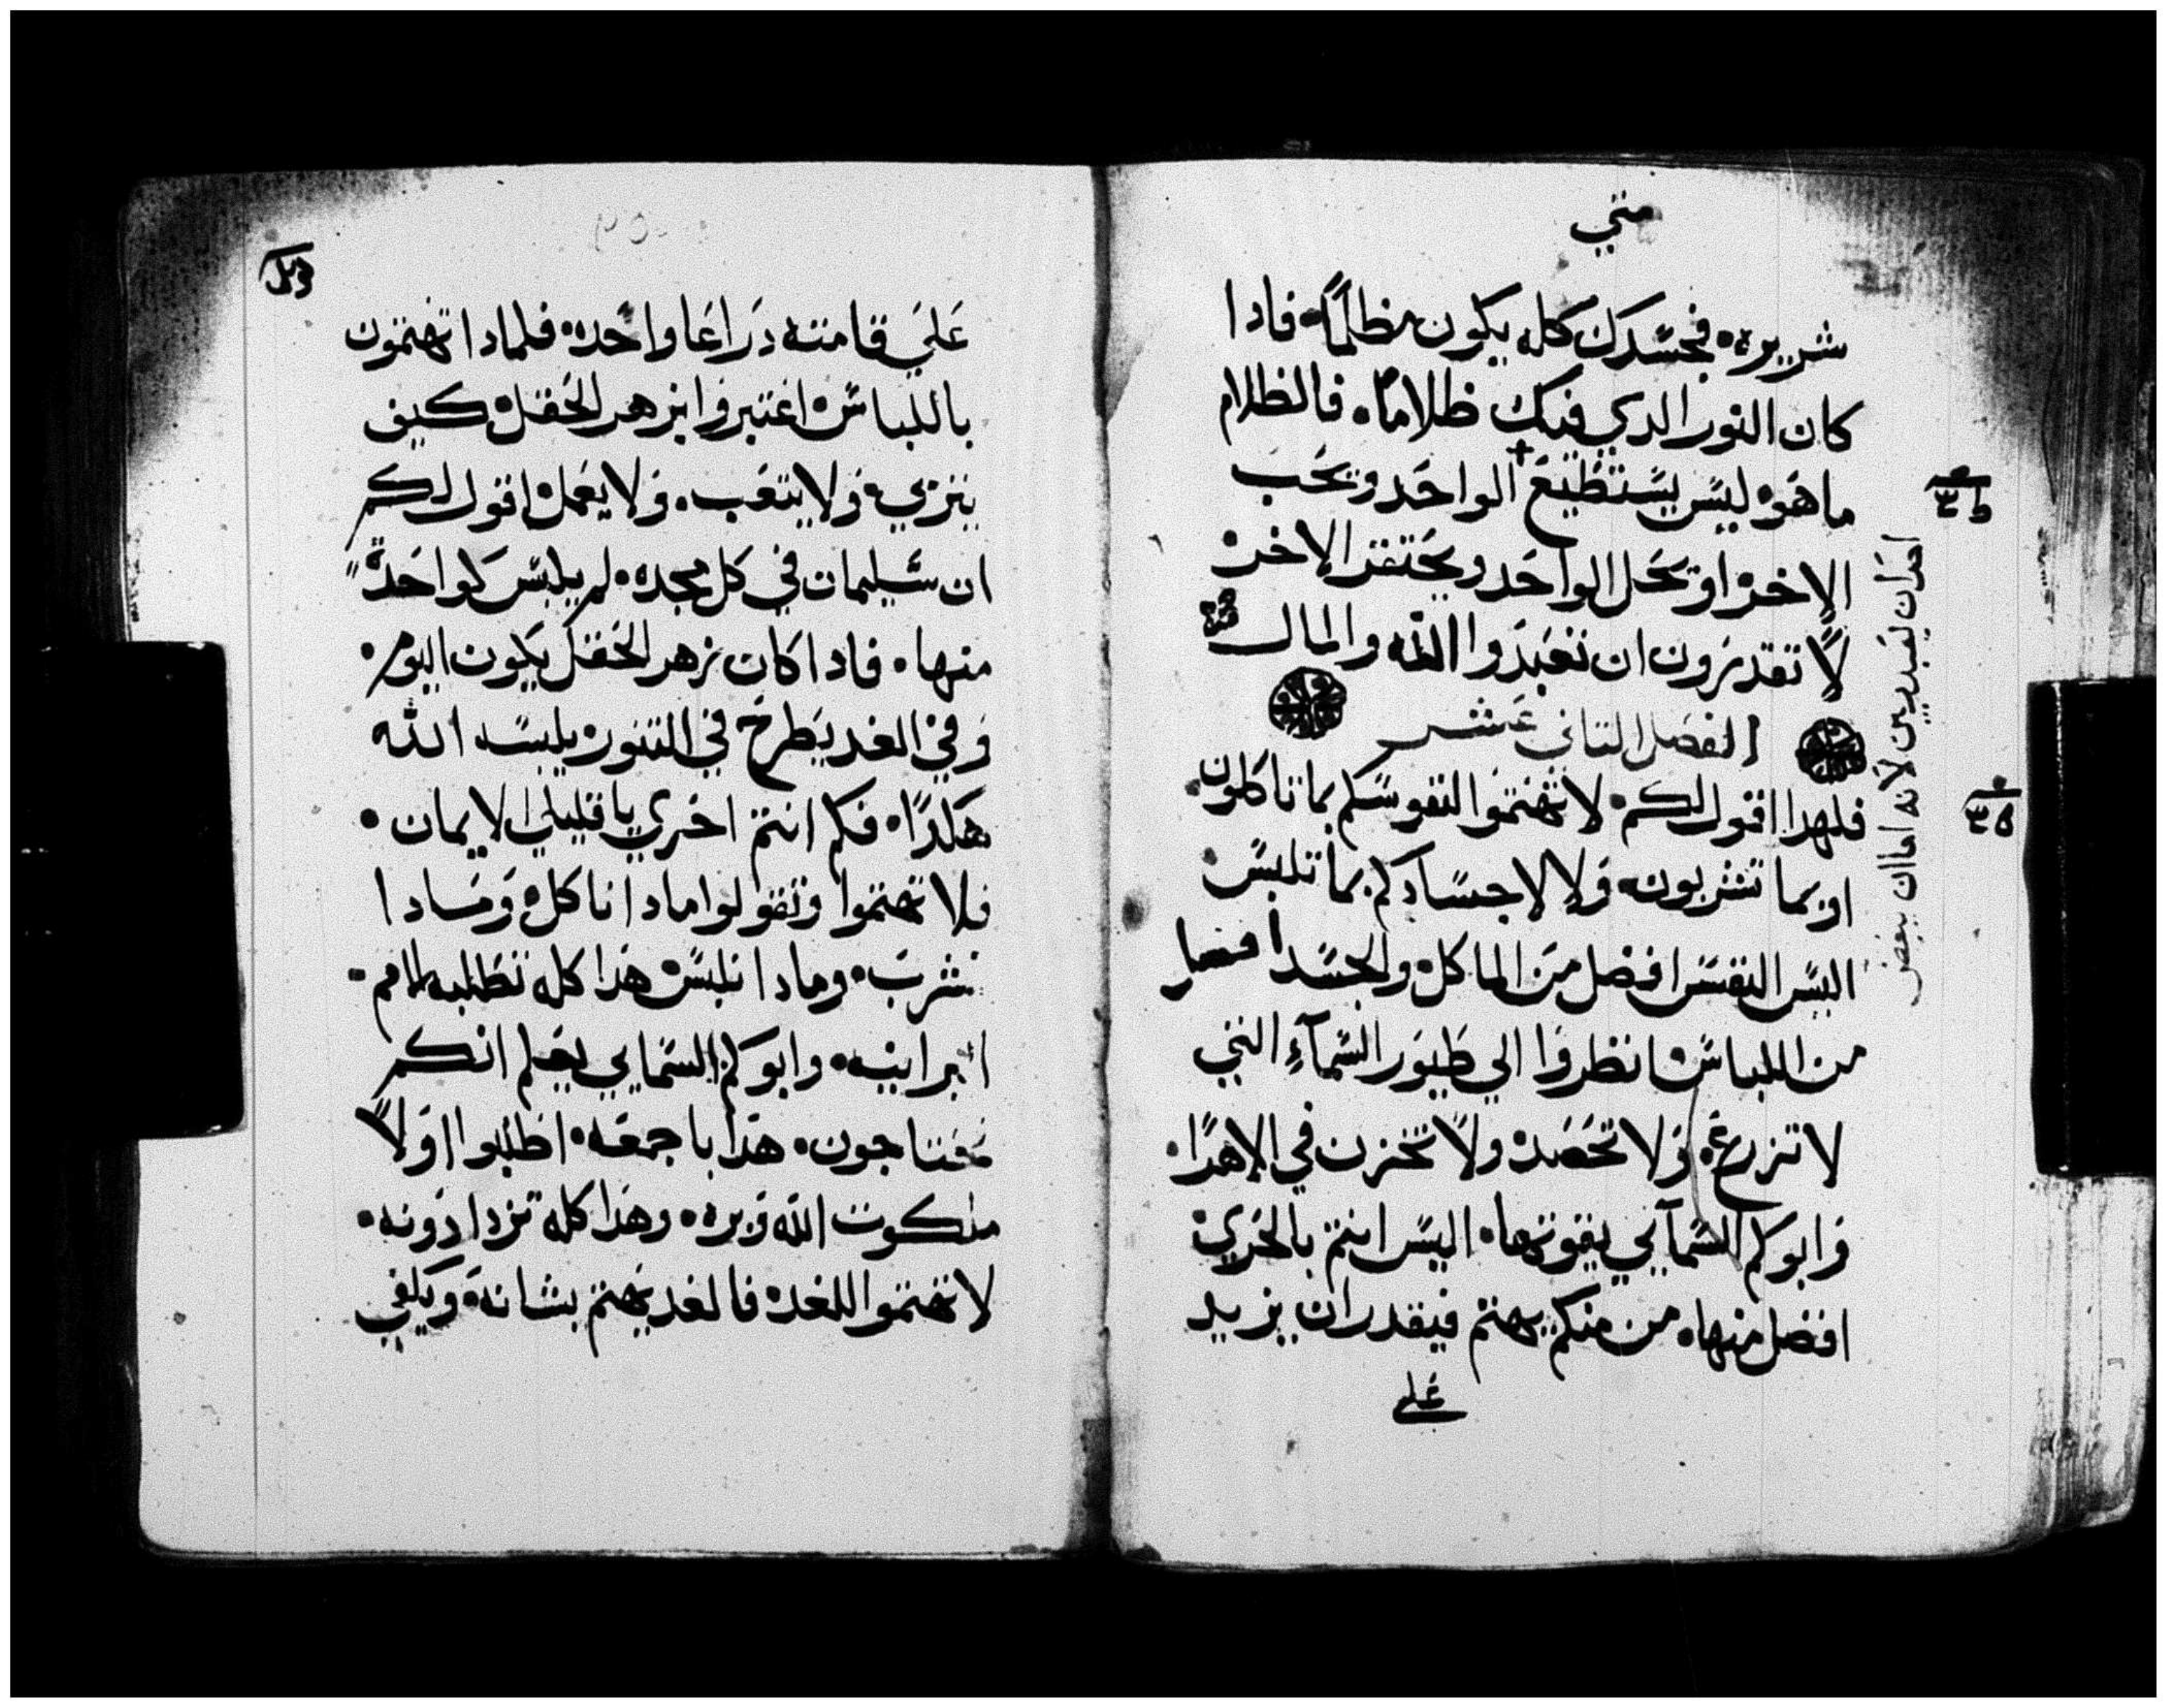 متي
شريره فجسدك كله يكون مظلماً فادا
كان النور الدي فيك ظلاماً فالظلام
ما هوه ليس يستطيع الواحد ويحب
الاخر او يحل الواحد ويحتقر الاخر
لا تقدرون ان تعبدوا الله والمال
احدان يعبد ربين لانه اما ان يبغض
الفصل التاني عشر
فلهدا اقول لكم لا تهتموا لنفوسكم بما تاكلون
او بما تشربون ولا لاجسادكم بما تلبس
اليس النفس افضل من الماكل والجسد افضل
من اللباس انظروا الي طيور السمآء التي
لا تزرع ولا تحصد ولا تخزن في الاهرا
وابوكم السمآيي يقوتها اليس انتم بالحري
افضل منها من منكم يهتم فيقدر ان يزيد
علي
علي قامته دراعا واحده فلمادا تهتمون
باللباس اعتبروا بزهر الحقل كيف
يتربي ولا يتعب ولا يعمل اقول لكم
ان سليمان في كل مجده لم يلبس كواحدة
منها فادا كان زهر الحقل يكون اليوم
وفي الغد يطرح في التنور يلبسه الله
هكدا فكم انتم احري يا قليلي الايمان
فلا تهتموا وتقولوا مادا ناكل ومادا
نشرب ومادا نلبس هدا كله تطلبه الامم
البرانيه وابوكم السمايي يعلم انكم
تحتاجون هدا باجمعه اطلبوا اولاً
ملكوت الله وبره وهدا كله تزدادونه
لا تهتموا للغد فالغد يهتم بشانه ويكفي